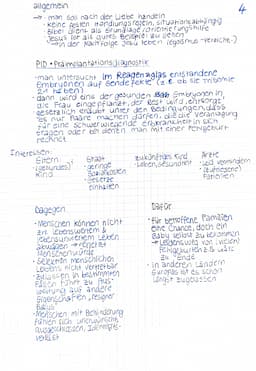 allgemein
4
→ man soll nach der Liebe handeln
- keine festen Handlungsregeln, situationsabhängig
- Bibel dient als Grundlage / Orientierungshilfe
- Jesus ist als gutes Beispiel zu sehen
→ in der Nachfolge Jesu leben
PID - Präimplantationsdiagnostik
- man untersucht im Reagenzglas entstandene
Embryonen auf Gendefekte (z.B. ob sie Trisomie
21 haben)
- dann wird eins der gesunden Embryonen in
die Frau eingepflanzt, der Rest wird entsorgt
- gesetzlich erlaubt unter den Bedingungen, dass
es nur Paare machen dürfen, die die Veranlagung
für eine schwerwiegende Erbkrankheit in sich
tragen oder bei denen man mit einer Fehlgeburt
rechnet
Interessen:
Eltern:
(gesundes)
Kind
Staat
- geringe
- Gesetze
einhalten
zukünftiges Kind
- Leben, Gesundheit
Ärzte
- Leid vermindern
- (zufriedene)
Patienten
Dagegen
- Menschen können nicht
zw. lebenswertem &
Menschenwürde
- Selektion menschlichen
Lebens nicht vertretbar
- Zulassen in bestimmten
Fällen führt zu Aus-
weitung auf andere
Eigenschaften, "Designer
Babys"
- Menschen mit Behinderung
fühlen sich unerwünscht,
ausgeschlossen
Dafür
- für betroffene Familien
eine Chance, doch ein
Baby selbst zu bekommen
→ Leidensweg von (vielen)
Fehlgeburten o.ä. wäre
zu Ende
- in anderen Ländern
Europas ist es schon
längst zugelassen